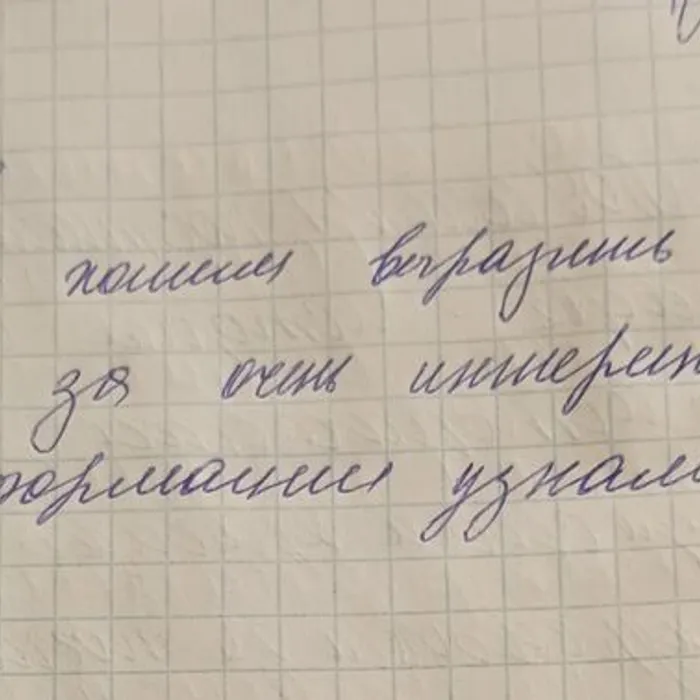 хотим выразить
за очень интерен
формации узнали